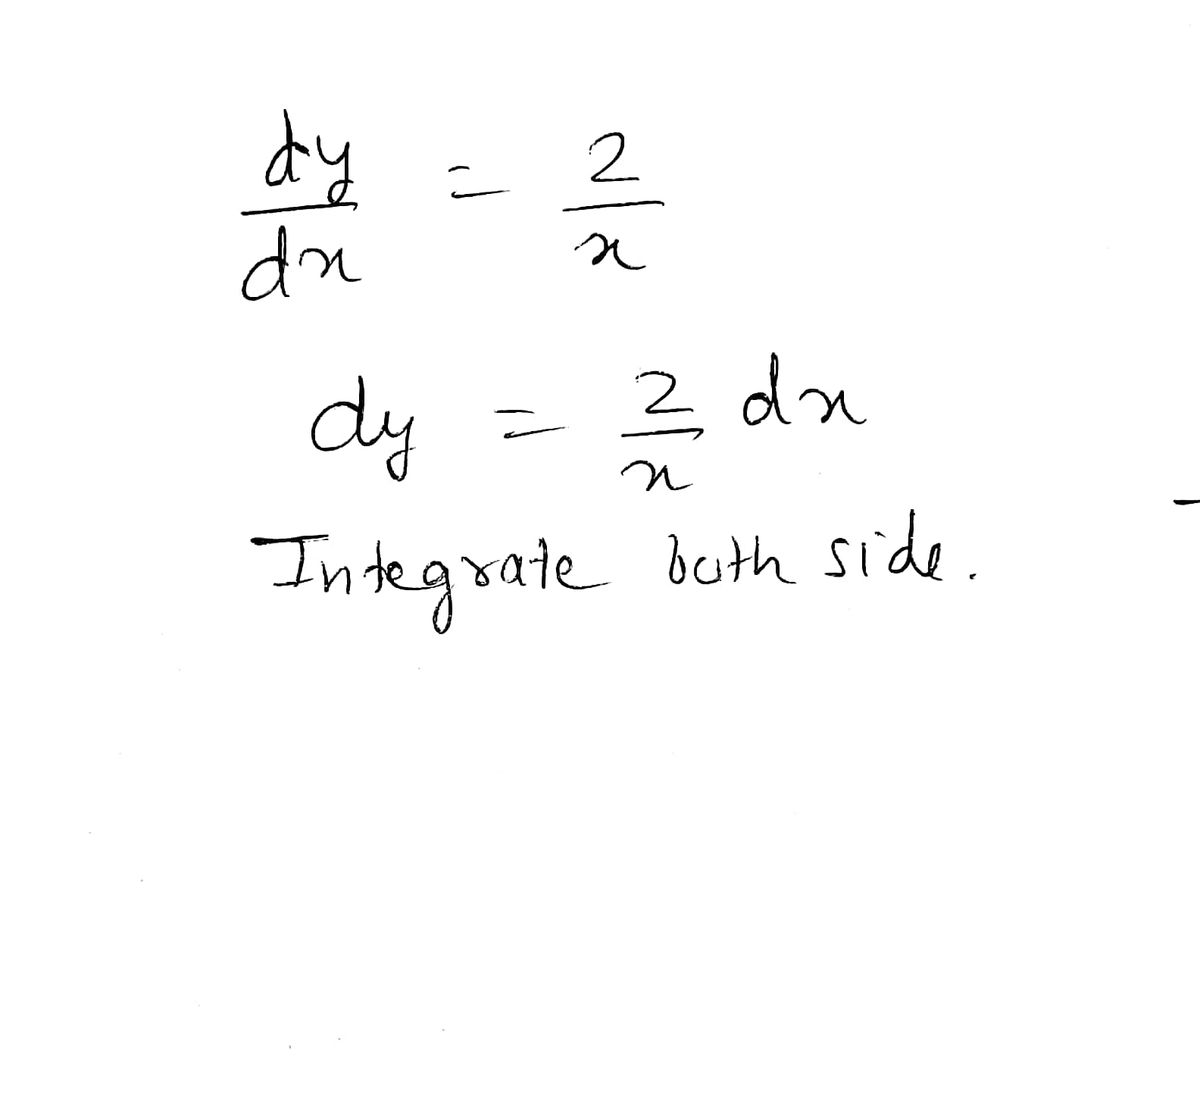 dy/dx = 2/x
dy = 2/x dx
Integrate both side.